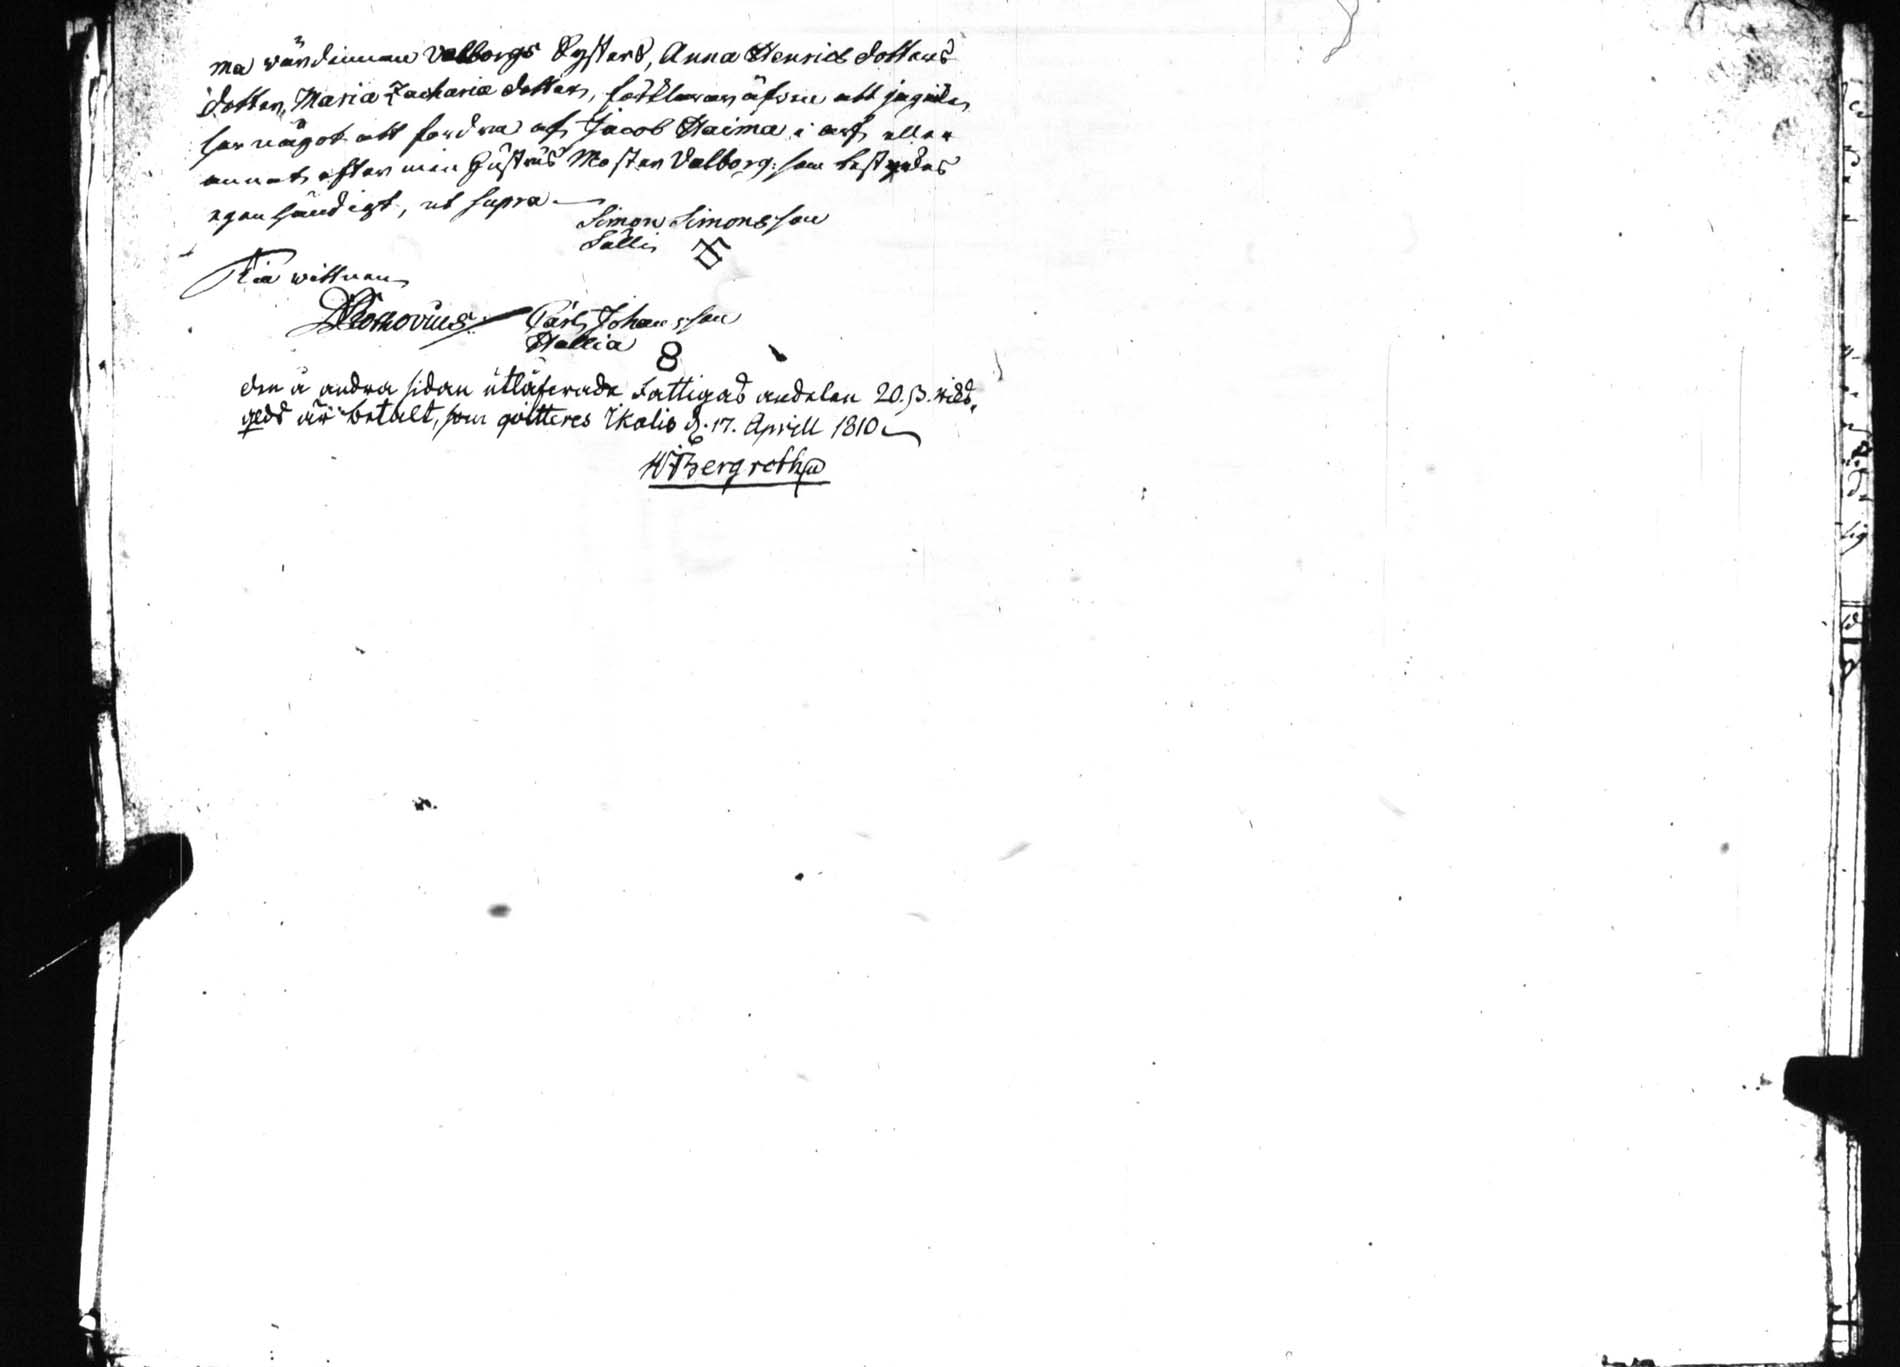 ma värdinnan Valborgs Systers, Anna Henrics dotters
dotter, Maria Zachariæ dotter, förklarar äfven att jag icke
har något att fordra af Jacob Haima i arf eller
annat efter min hustrus Moster Valborg: som betygdas
egenhändigt, ut supra
Simon Simonsson
Sälli
Till wittnen
Carl Johansson
Hallia
8
den å andra sidan utläfverade Fattigas andelen 20. β. rikd.
gedd är betalt, som qvitteres Ikalis d. 17. Aprill 1810
Bergroth